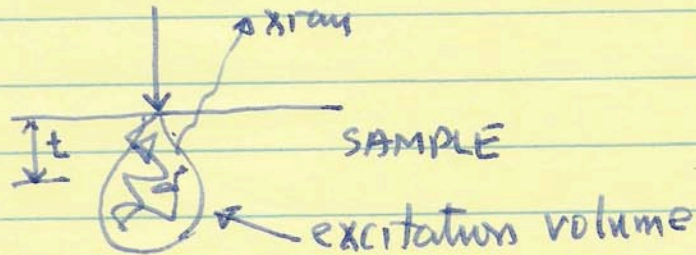 xray
t
SAMPLE
excitation volume